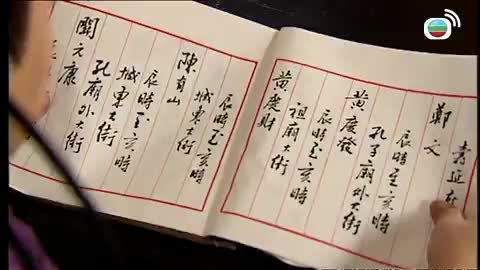 鄭文
辰時至亥時
孔子廟外大街
黃慶發
辰時至亥時
祖廟大街
黃慶財
辰時至亥時
城東大街
陳有山
辰時至亥時
城東大街
孔廟外大街
關元康